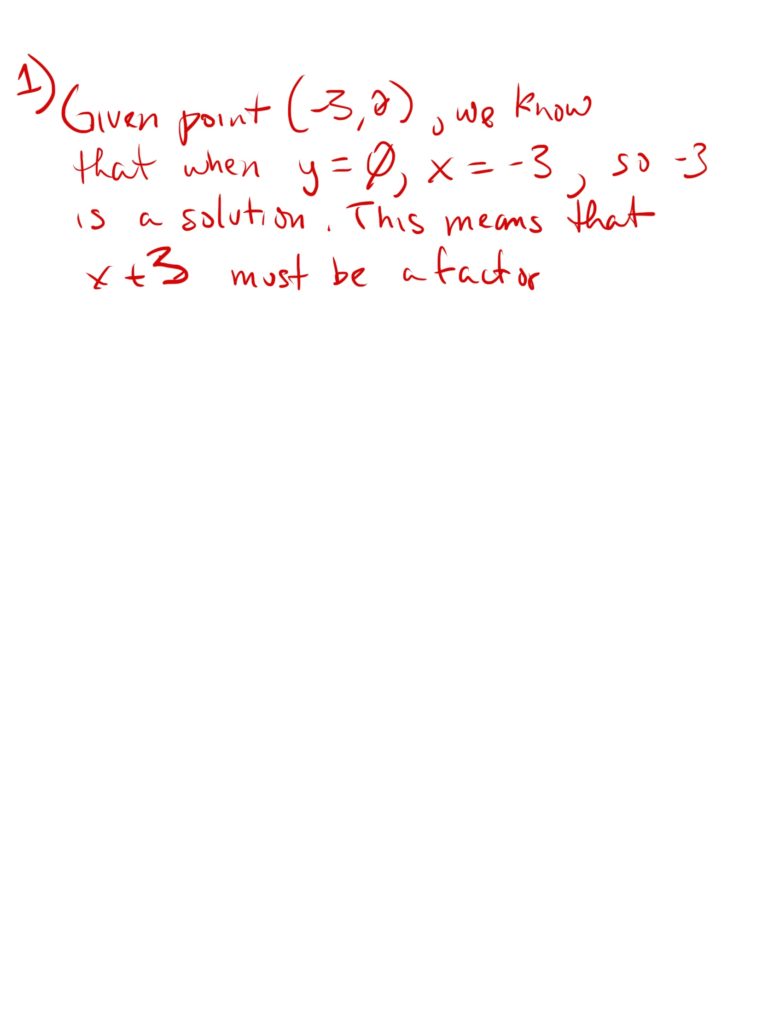 1) Given point (-3,0), we know
that when y = Ø, x = -3, so -3
is a solution. This means that
x + 3 must be a factor